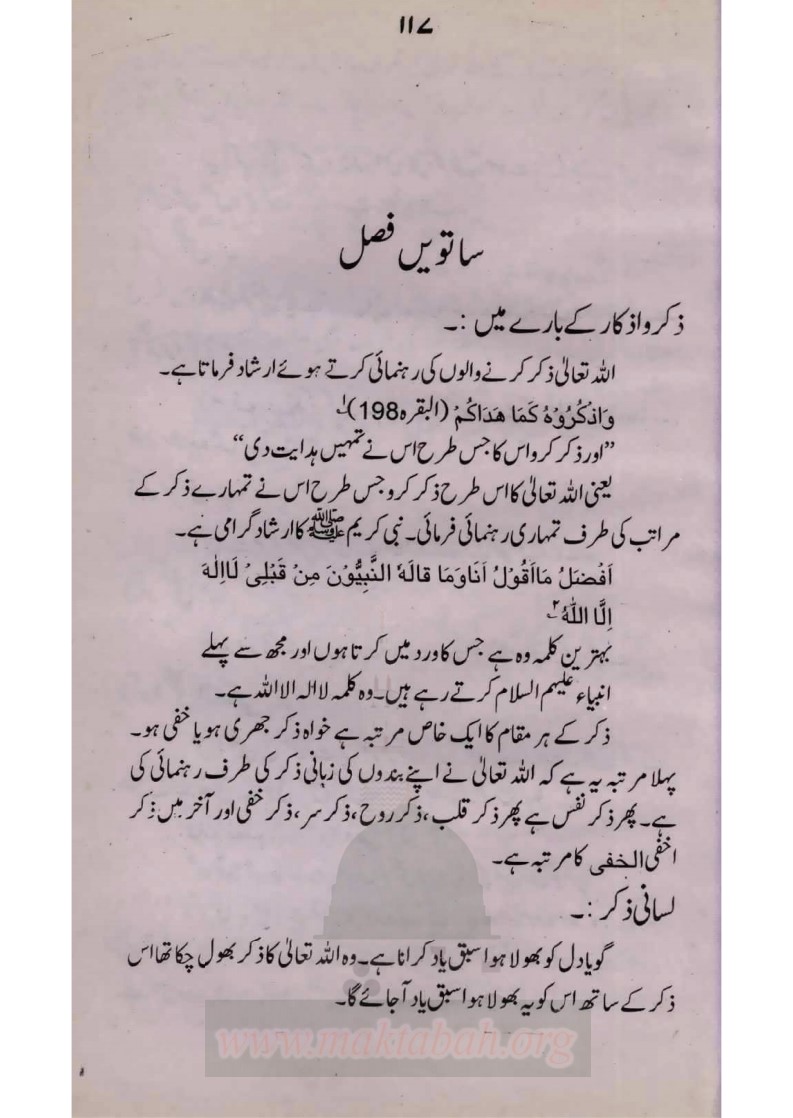 ۱۱۷
ساتویں فصل
ذکر و اذکار کے بارے میں :۔
اللہ تعالیٰ ذکر کرنے والوں کی رہنمائی کرتے ہوئے ارشاد فرماتا ہے۔
وَاذْكُرُوْهُ كَمَا هَدَاكُمْ (البقرہ198)۱؎
”اور ذکر کرو اس کا جس طرح اس نے تمہیں ہدایت دی“
یعنی اللہ تعالیٰ کا اس طرح ذکر کرو جس طرح اس نے تمہارے ذکر کے
مراتب کی طرف تمہاری رہنمائی فرمائی۔ نبی کریم ﷺ کا ارشاد گرامی ہے۔
اَفْضَلُ مَااَقُوْلُ اَنَاوَمَا قالَهٗ النَّبِيُّوْنَ مِنْ قَبْلِىْ لَااِلٰهَ
اِلَّا اللّٰهُ۲؎
بہترین کلمہ وہ ہے جس کا ورد میں کرتا ہوں اور مجھ سے پہلے
انبیاء علیہم السلام کرتے رہے ہیں۔ وہ کلمہ لا الہ الا اللہ ہے۔
ذکر کے ہر مقام کا ایک خاص مرتبہ ہے خواہ ذکر جھری ہو یا خفی ہو۔
پہلا مرتبہ یہ ہے کہ اللہ تعالیٰ نے اپنے بندوں کی زبانی ذکر کی طرف رہنمائی کی
ہے۔ پھر ذکر نفس ہے پھر ذکر قلب، ذکر روح، ذکر سر، ذکر خفی اور آخر میں ذکر
اخفی الخفی کا مرتبہ ہے۔
لسانی ذکر :۔
گویا دل کو بھولا ہوا سبق یاد کرانا ہے۔ وہ اللہ تعالیٰ کا ذکر بھول چکا تھا اس
ذکر کے ساتھ اس کو یہ بھولا ہوا سبق یاد آجائے گا۔
www.maktabah.org